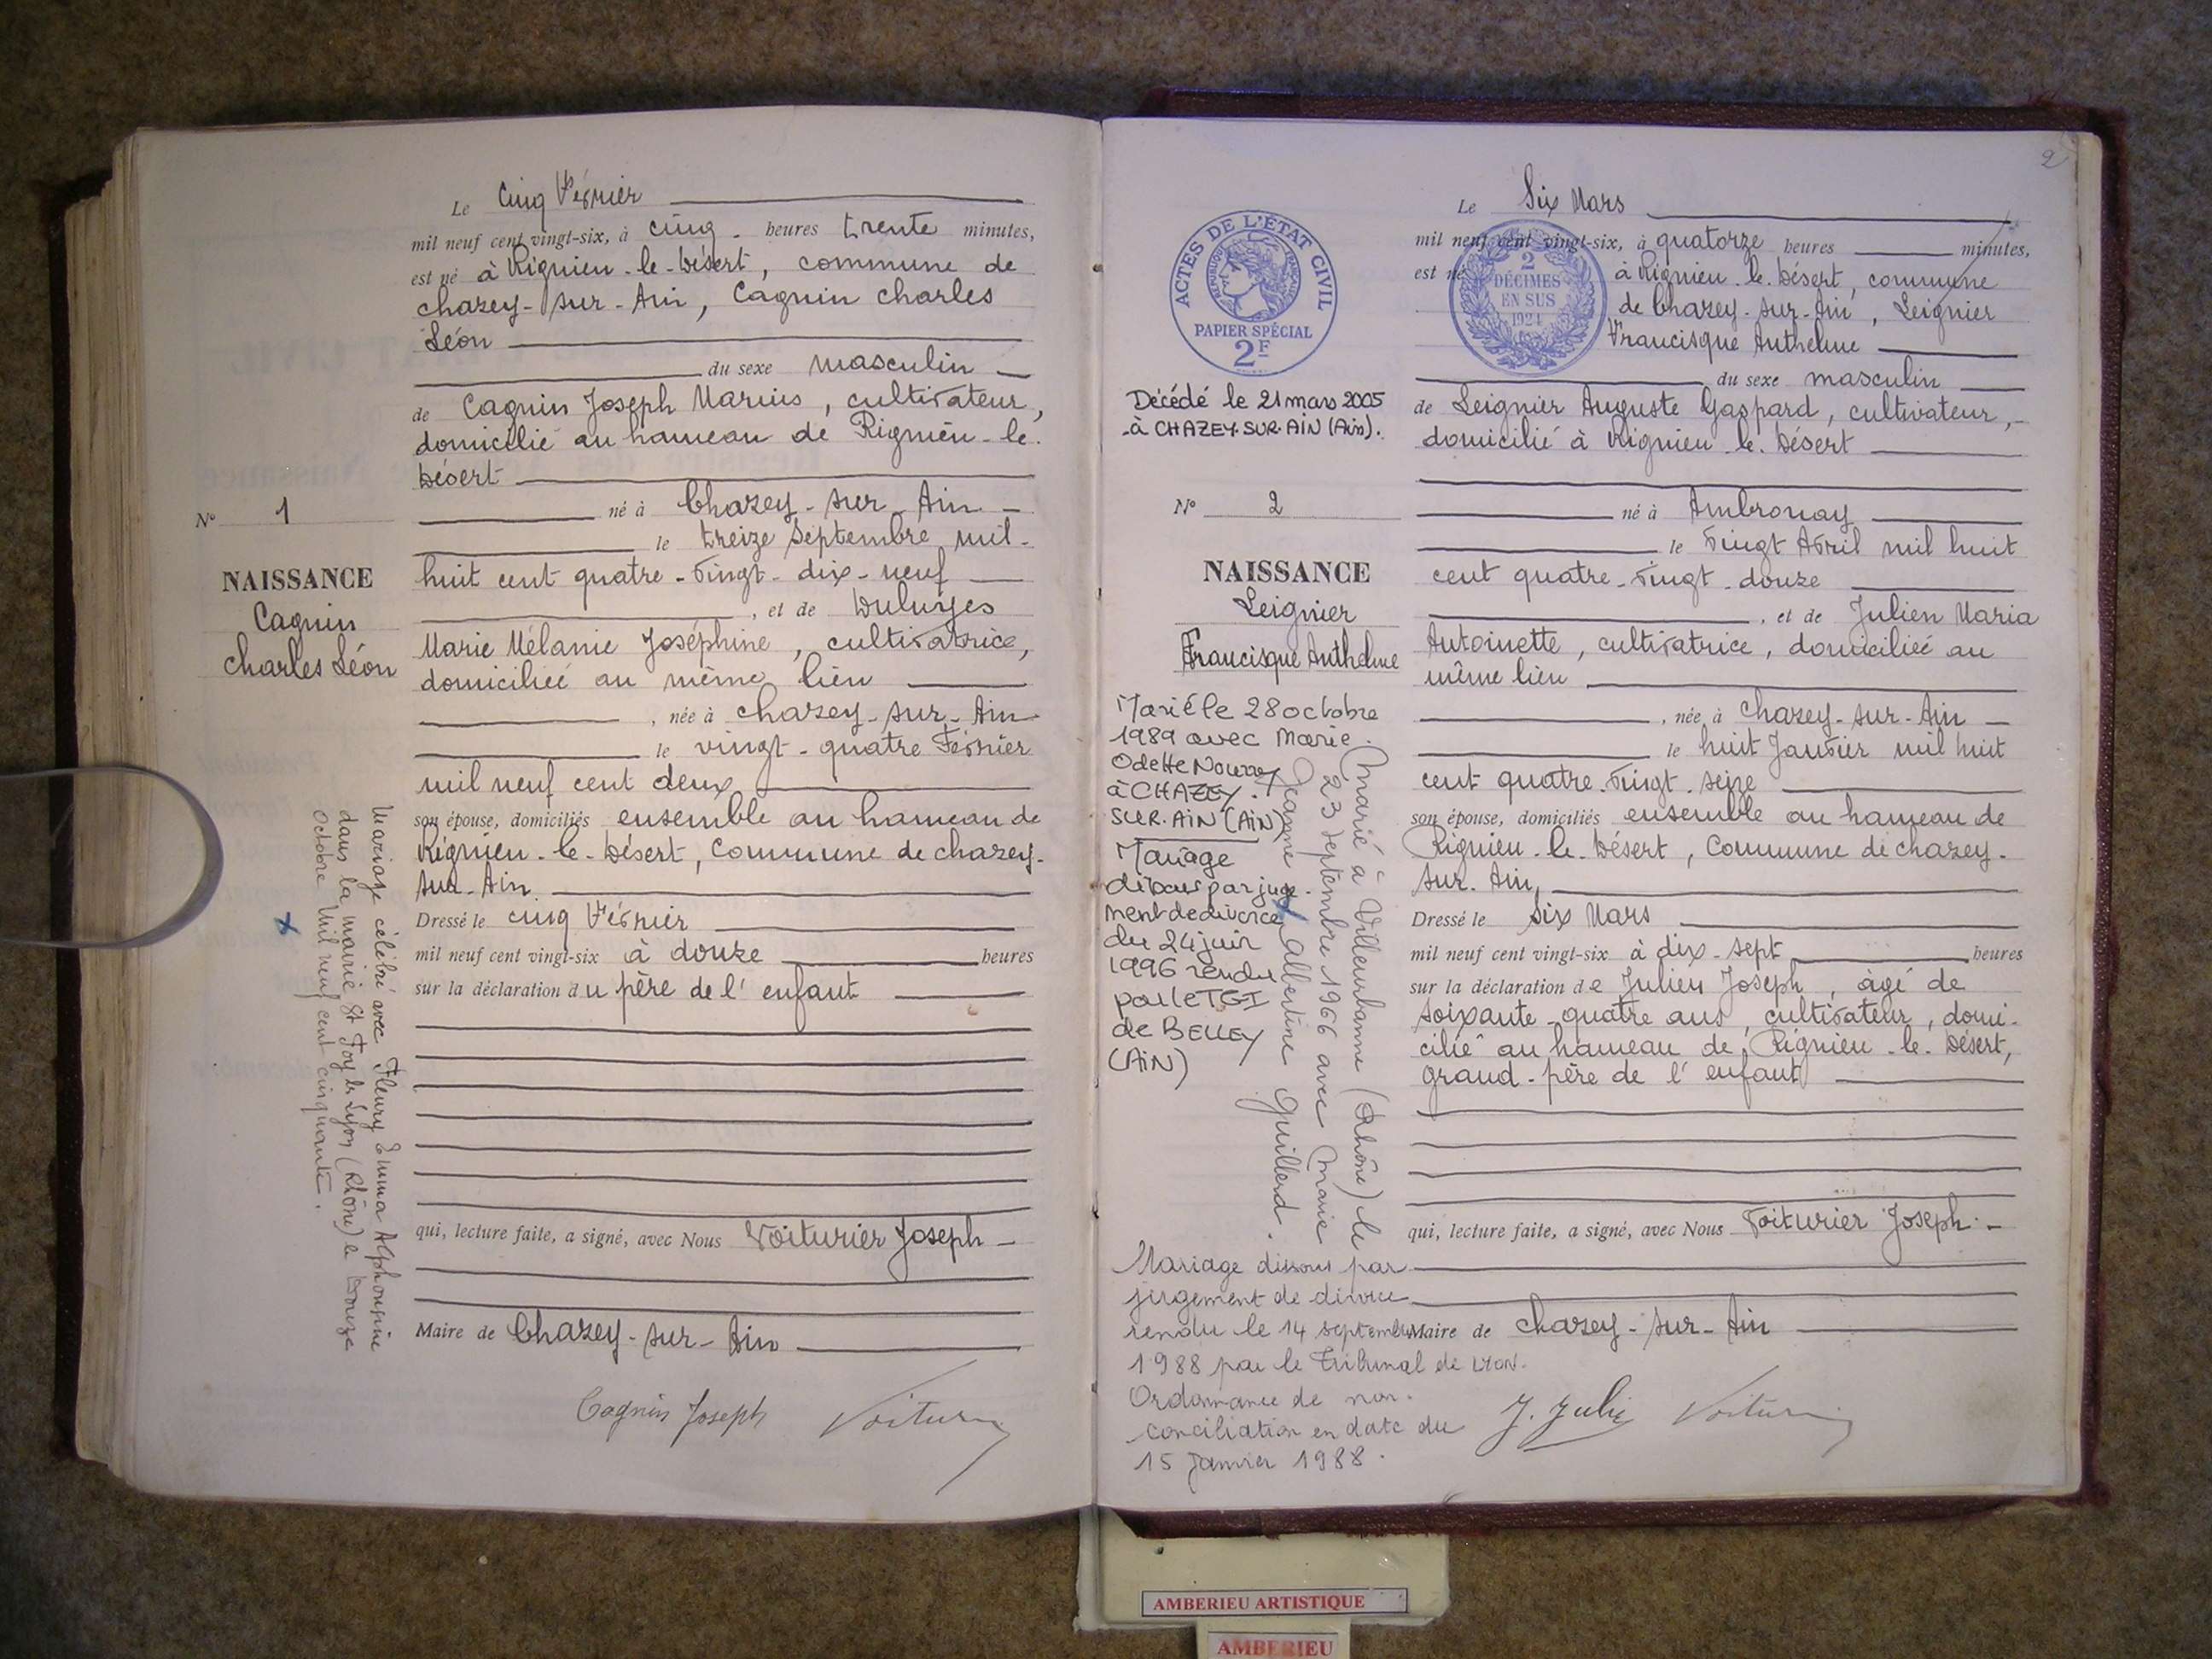 Le Cinq Février
mil neuf cent vingt-six, à cinq heures trente minutes,
est né à Rignieu-le-Désert, commune de
Chazey-sur-Ain, Cagnin Charles
Léon
du sexe masculin
de Cagnin Joseph Marius, cultivateur,
domicilié au hameau de Rignieu-le-
Désert
né à Chazey-sur-Ain
le treize Septembre mil-
huit cent quatre-vingt-dix-neuf
, et de
Marie Mélanie Joséphine, cultivatrice,
domiciliée au même lieu
, née à Chazey-sur-Ain
le vingt-quatre Février
mil neuf cent deux
son épouse, domiciliés ensemble au hameau de
Rignieu-le-Désert, Commune de Chazey-
sur-Ain
Dressé le cinq Février
mil neuf cent vingt-six à douze heures
sur la déclaration du père de l'enfant
qui, lecture faite, a signé, avec Nous Voiturier Joseph
Maire de Chazey-sur-Ain
Cagnin Joseph
N° 1
NAISSANCE
Cagnin
Charles Léon
Mariage célébré avec Fleury Emma Alphonsine
dans la mairie St Foy les Lyon (Rhône) le douze
Octobre mil neuf cent cinquante.
2
ACTES DE L'ÉTAT CIVIL
RÉPUBLIQUE FRANÇAISE
PAPIER SPÉCIAL
2F
2
DÉCIMES
EN SUS
1924
Décédé le 21 mars 2005
à CHAZEY-SUR-AIN (Ain).
N° 2
NAISSANCE
Leignier
Francisque Anthelme
Marié le 28 octobre
1989 avec Marie
Odette Nourry
à CHAZEY-
SUR-AIN (AIN)
Mariage
dissous par juge-
ment de divorce
du 24 juin
1996 rendu
par le TGI
de BELLEY
(AIN)
Marié à Villeurbanne (Rhône) le
23 septembre 1966 avec Marie
Jeanne Albertine Guillerd.
Mariage dissous par
jugement de divorce
rendu le 14 septembre
1988 par le Tribunal de LYON.
Ordonnance de non-
conciliation en date du
15 Janvier 1988.
Le Six Mars
mil neuf cent vingt-six, à quatorze heures minutes,
est né à Rignieu-le-Désert, commune
de Chazey-sur-Ain, Leignier
Francisque Anthelme
du sexe masculin
de Leignier Auguste Gaspard, cultivateur,
domicilié à Rignieu-le-Désert
né à Ambronay
le vingt Avril mil huit
cent quatre-vingt-douze
, et de Julien Maria
Antoinette, cultivatrice, domiciliée au
même lieu
, née à Chazey-sur-Ain
le huit Janvier mil huit
cent quatre-vingt-seize
son épouse, domiciliés ensemble au hameau de
Rignieu-le-Désert, Commune de Chazey-
sur-Ain,
Dressé le six Mars
mil neuf cent vingt-six à dix-sept heures
sur la déclaration de Julien Joseph, âgé de
soixante-quatre ans, cultivateur, domi-
cilié au hameau de Rignieu-le-Désert,
grand-père de l'enfant
qui, lecture faite, a signé, avec Nous Voiturier Joseph
Maire de Chazey-sur-Ain
AMBERIEU ARTISTIQUE
AMBERIEU